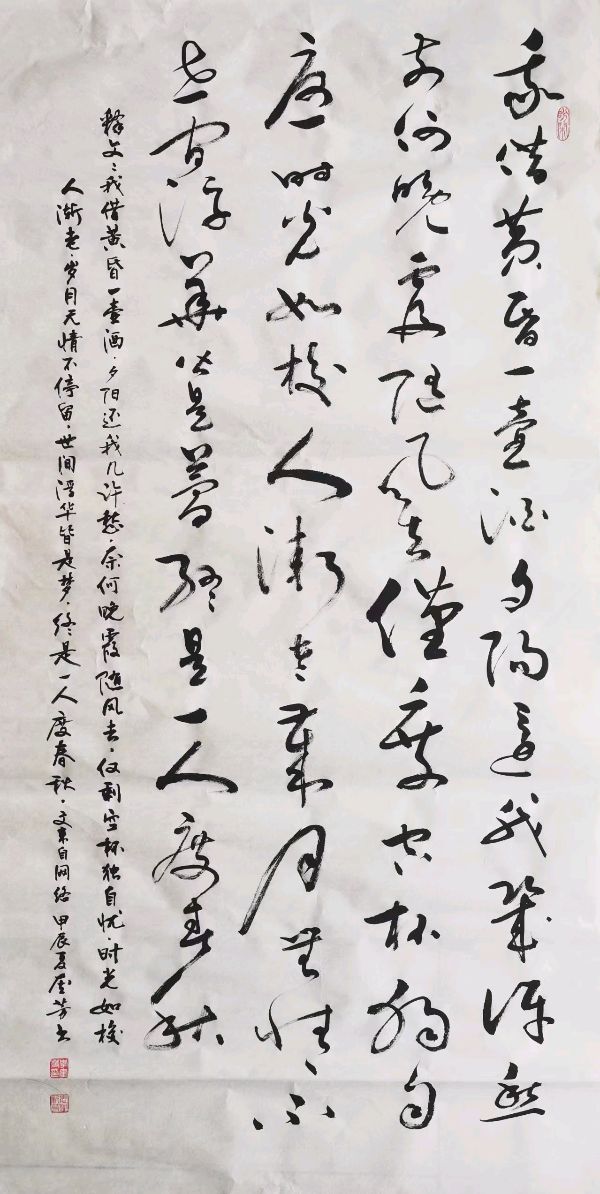 我借黄昏一壺酒夕陽還我幾許愁
奈何晚霞随风去僅剩空杯獨自
憂时光如梭人漸老歲月無情不
世間浮華皆是夢終是一人度春秋
释文：我借黄昏一壶酒，夕阳还我几许愁，奈何晚霞随风去，仅剩空杯独自忧，时光如梭
人渐老，岁月无情不停留，世间浮华皆是梦，终是一人度春秋，文来自网络 甲辰夏 芳书